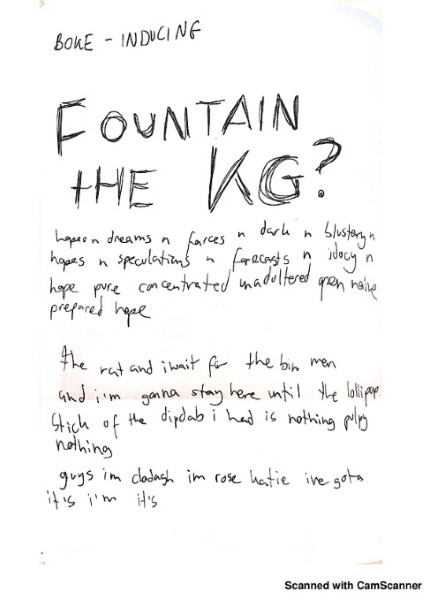 BOKE - INDUCING
FOUNTAIN
THE KG?
hopes n dreams n farces n dark n blustery n
hopes n speculations n forecasts n idocy n
hope pure concentrated unadultered open naive
prepared hope
the rat and i wait for the bin men
and i'm gonna stay here until the lollipop
stick of the dipdab i had is nothing pulpy
nothing
guys im clodagh im rose katie ive gota
it's i'm it's
Scanned with CamScanner